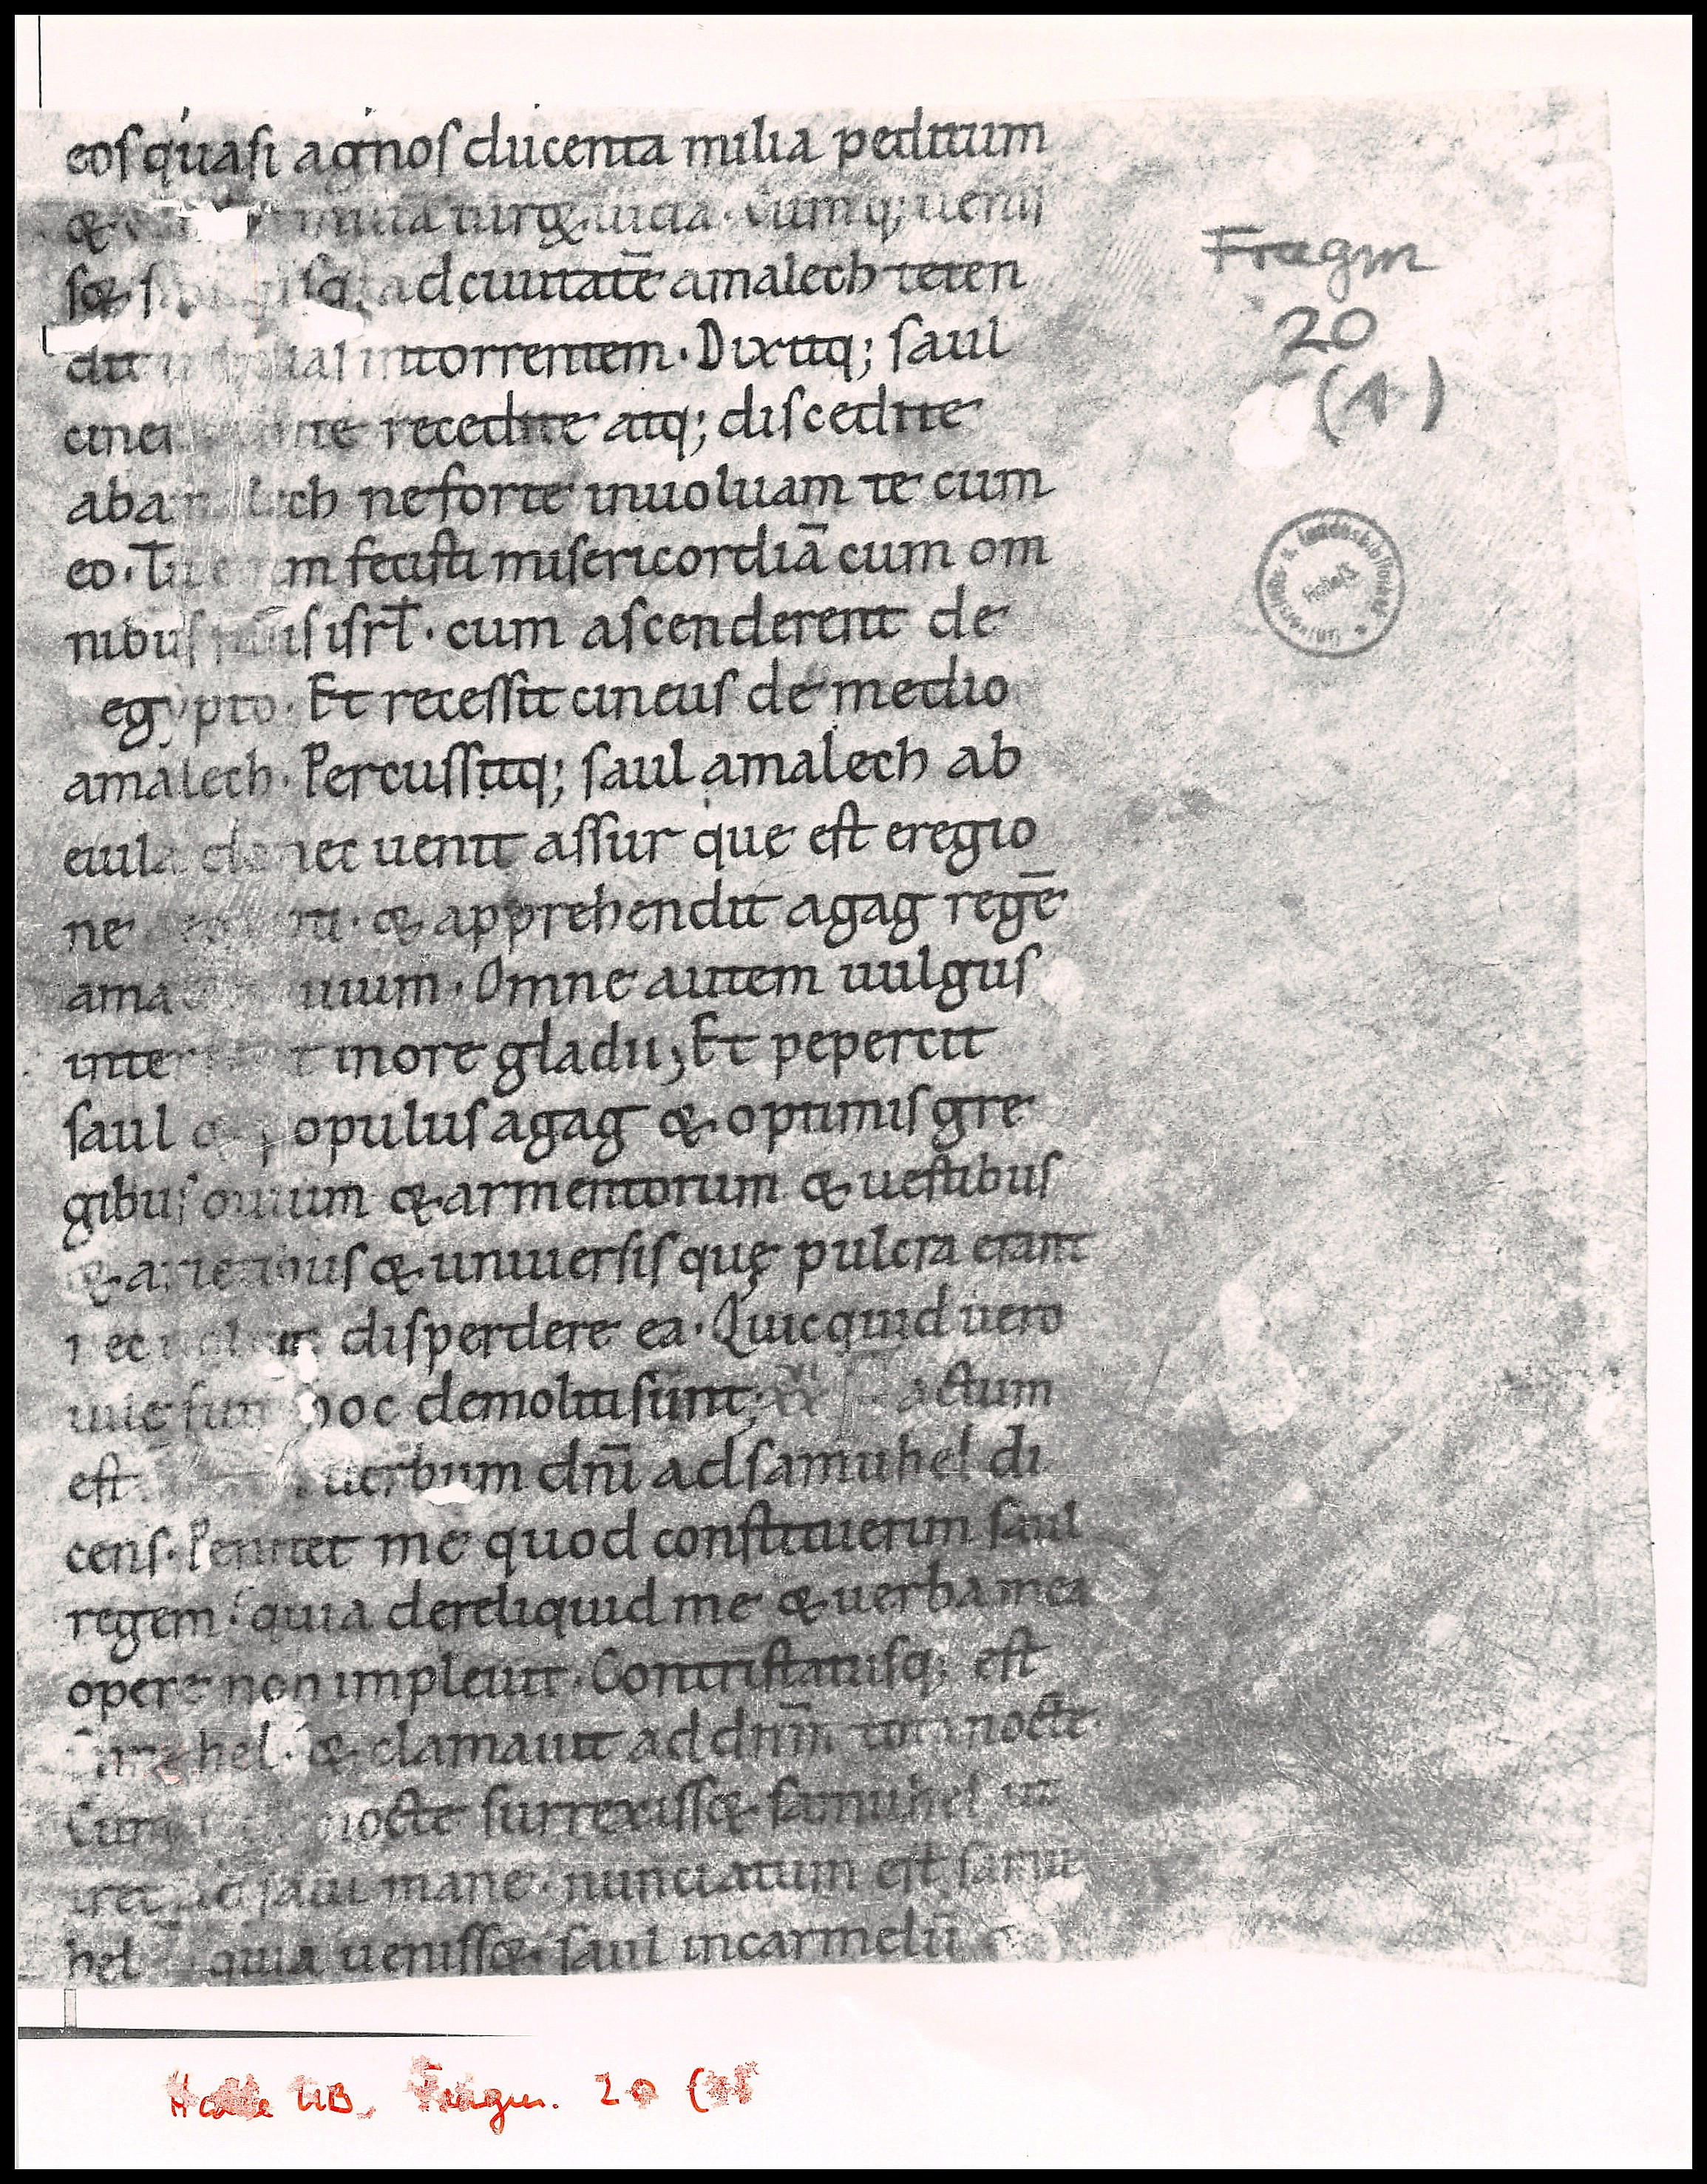 eos quasi agnos ducenta milia peditum
&  milia uirg& iuda. Cumq; uenis
s& s   usq; ad ciuitatē amalech teten
dit  insidias intorrentem. Dixitq; saul
cineo  recedite atq; discedite
ab amalech ne forte inuoluam te cum
eo. Tu enim fecisti misericordiā cum om
nibus filiis isrł. cum ascenderent de
egypto. Et recessit cineus de medio
amalech. Percussitq; saul amalech ab
euila donec uenit assur quę est eregio
ne  & apprehendit agag regē
amalech uiuum. Omne autem uulgus
interfecit inore gladii; Et pepercit
saul & populus agag & optimis gre
gibus ouium & armentorum & uestibus
& arietibus & uniuersis quę pulcra erant
nec uoluer disperdere ea. Quicquid uero
uile fuit hoc demoliti sunt; actum
est  uerbum dn̄i ad samuhel di
cens. Penitet me quod constituerim saul
regem: quia dereliquid me & uerba mea
opere non impleuit. Contristatusq; est
samuhel. & clamauit ad dn̄m tota nocte
Cumq; nocte surrexiss& samuhel ut
iret ad saul mane. nunciatum est samu
hel quia ueniss& saul incarmelū
Fragm
20
(1)
Universitäts- u. Landesbibliothek
Halle
Halle UB, Fragm. 20 (